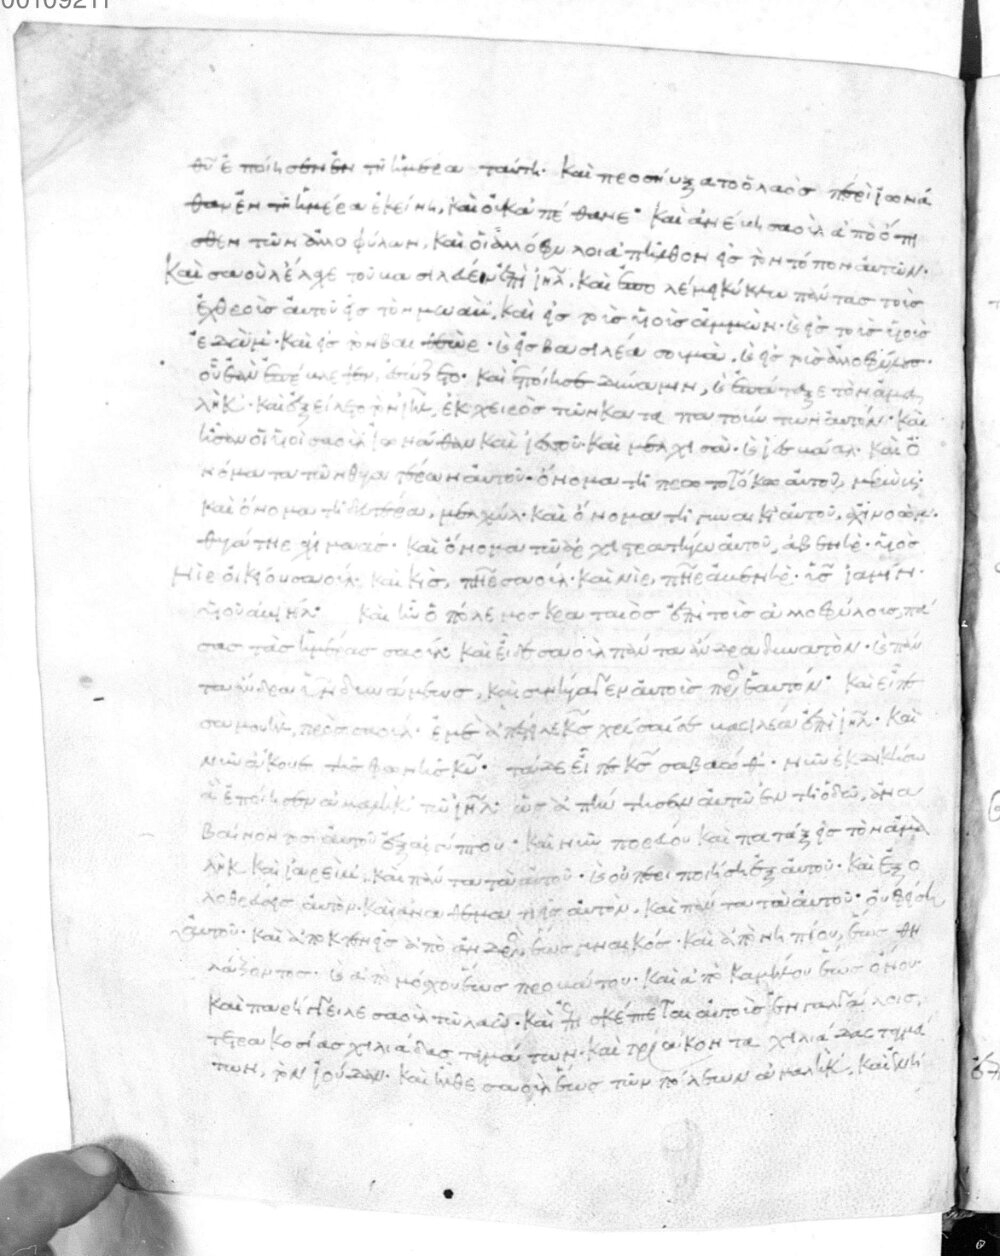 00109211
θῦ ἐποίησεν ἐν τῆ ἡμέρα ταύτη. καὶ προσηύξατο ὁ λαὸς περὶ ἰωνά
θαν ἐν τῆ ἡμέρα ἐκείνη, καὶ οὐκ ἀπέθανε. καὶ ἀνέβη σαοὺλ ἀπὸ ὄπι
σθεν τῶν ἀλλοφύλων, καὶ οἱ ἀλλόφυλοι ἀπῆλθον εἰς τὸν τόπον αὐτῶν.
καὶ σαοὺλ ἔλαχε τοῦ βασιλεύειν ἐπὶ ἰηλ. καὶ ἐπολέμει κύκλω πάντας τοὺς
ἐχθροὺς αὐτοῦ εἰς τὸν μωὰβ, καὶ εἰς τοὺς υἱοὺς ἀμμών. καὶ εἰς τοὺς υἱοὺς
ἐδώμ. καὶ εἰς τὸν βαι καὶ εἰς βασιλέα σουβὰ, καὶ εἰς τοὺς ἀλλοφύλους.
οὗ ἐὰν ἐσώζετο. καὶ ἐποίησε δύναμιν, καὶ ἐπάταξε τὸν ἀμα
λὴκ. καὶ ἐξείλετο τὸν ιηλ, ἐκ χειρὸς τῶν καταπατούντων αὐτόν. καὶ
ἦσαν οἱ υἱοὶ σαοὺλ ἰωνάθαν καὶ καὶ μελχισὰ. καὶ ὀ
νόματα τῶν θυγατέρων αὐτοῦ. ὄνομα τῆ πρωτοτόκω αὐτοῦ,
καὶ ὄνομα τῆ δευτέρα, μελχὸλ. καὶ ὄνομα τῆ γυναικὶ αὐτοῦ,
θυγάτηρ καὶ ὄνομα τῶ ἀρχιστρατήγω αὐτοῦ, ἀβενὴρ. υἱὸς
νὶρ οἰκείου σαούλ. καὶ κὶς, πὴρ σαούλ. καὶ νὶρ, πὴρ ἀβενὴρ. υἱὸς ἰαμὴν.
υἱοῦ ἀβιὴλ. καὶ ἦν ὁ πόλεμος κραταιὸς ἐπὶ τοὺς ἀλλοφύλους, πά
σας τὰς ἡμέρας σαούλ. καὶ εἶδε σαοὺλ πάντα ἄνδρα δυνατὸν. καὶ πάν
τα ἄνδρα υἱὸν δυνάμεως, καὶ συνήγαγεν αὐτοὺς πρὸς ἑαυτόν. καὶ εἶπε
σαμουὴλ, πρὸς σαούλ. ἐμὲ ἀπέστειλε κς χρῖσαί σε βασιλέα ἐπὶ ιηλ. καὶ
νῦν ἄκουε τῆς φωνῆς κυ. τάδε εἶπε κς σαβαώθ. νῦν ἐκδικήσω
ἃ ἐποίησεν ἀμαλὴκ τῶ ιηλ. ὡς ἀπήντησεν αὐτῶ ἐν τῆ ὁδῶ, ἀνα
βαίνοντος αὐτοῦ ἐξ αἰγύπτου. καὶ νῦν πορεύου καὶ πατάξεις τὸν ἀμα
λὴκ καὶ ἰαρεὶμ, καὶ πάντα τὰ αὐτοῦ. καὶ οὐ περιποιήση ἐξ αὐτοῦ. καὶ ἐξο
λοθρεύσεις αὐτὸν. καὶ ἀναθεματιεῖς αὐτὸν, καὶ πάντα τὰ αὐτοῦ. οὐ φείση
αὐτοῦ. καὶ ἀποκτενεῖς ἀπὸ ἀνδρὸς ἕως γυναικός. καὶ ἀπὸ νηπίου, ἕως θη
λάζοντος. καὶ ἀπὸ μόσχου ἕως προβάτου. καὶ ἀπὸ καμήλου ἕως ὄνου.
καὶ παρήγγειλε σαοὺλ τῶ λαῶ. καὶ ἐπισκέπτεται αὐτοὺς ἐν γαλγάλοις,
τετρακοσίας χιλιάδας ταγμάτων. καὶ τριάκοντα χιλιάδας ταγμά
των, τὸν ἰούδαν. καὶ ἦλθε σαοὺλ ἕως τῶν πόλεων ἀμαλὴκ. καὶ ἐνή